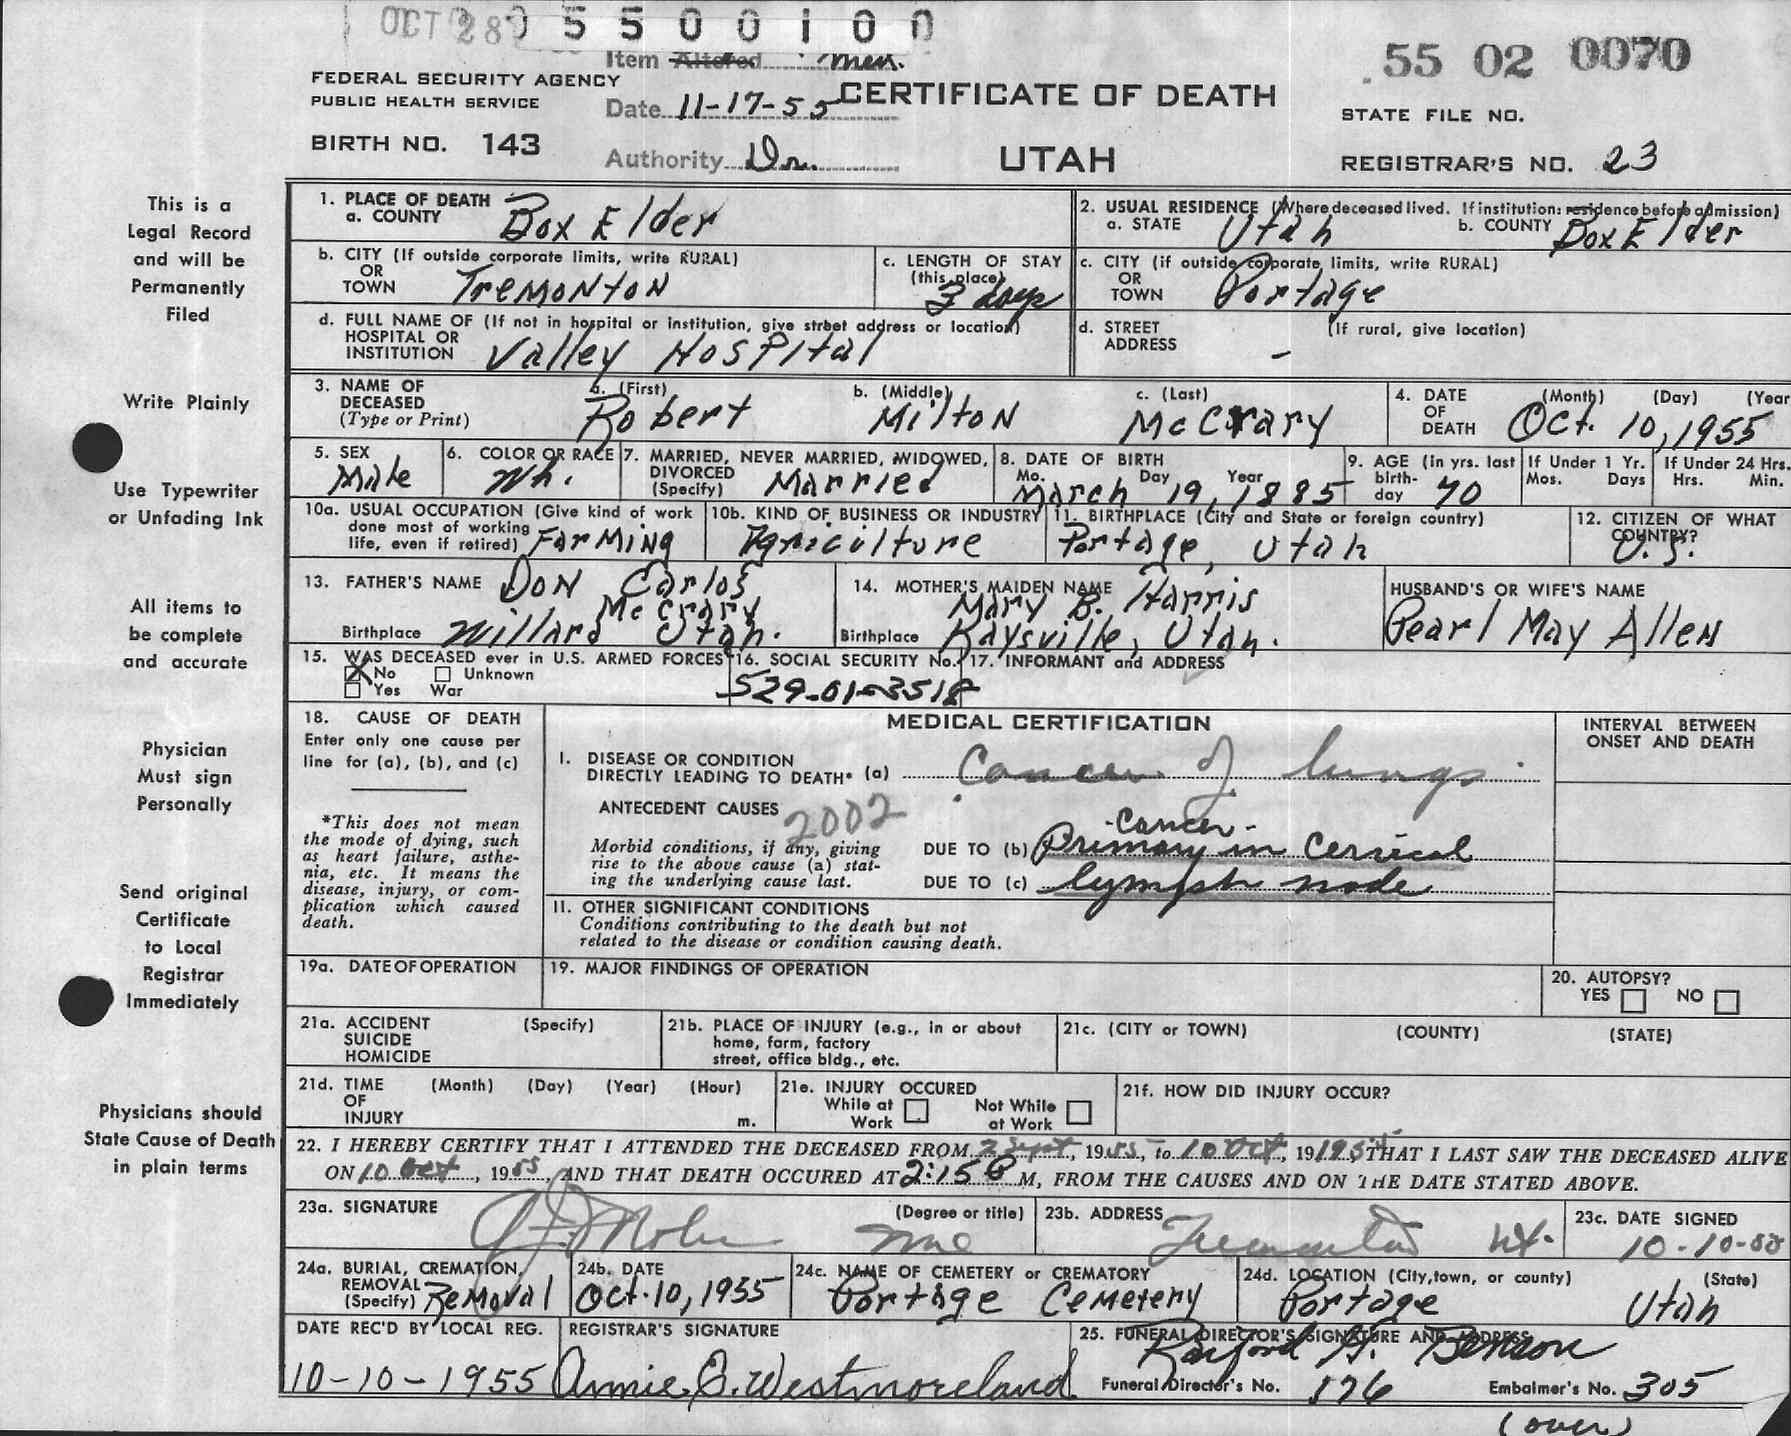 OCT 28 0 5 5 0 0 1 0 0
Item Altered men.
55 02 0070
FEDERAL SECURITY AGENCY
PUBLIC HEALTH SERVICE
Date 11-17-55
CERTIFICATE OF DEATH
STATE FILE NO.
BIRTH NO. 143
Authority Dr.
UTAH
REGISTRAR'S NO. 23
This is a
Legal Record
and will be
Permanently
Filed
Write Plainly
Use Typewriter
or Unfading Ink
All items to
be complete
and accurate
Physician
Must sign
Personally
Send original
Certificate
to Local
Registrar
Immediately
Physicians should
State Cause of Death
in plain terms
1. PLACE OF DEATH
a. COUNTY Box Elder
2. USUAL RESIDENCE (Where deceased lived. If institution: residence before admission)
a. STATE Utah b. COUNTY Box Elder
b. CITY (If outside corporate limits, write RURAL)
OR
TOWN Tremonton
c. LENGTH OF STAY
(this place)
3 days
c. CITY (if outside corporate limits, write RURAL)
OR
TOWN Portage
d. FULL NAME OF (If not in hospital or institution, give street address or location)
HOSPITAL OR
INSTITUTION Valley Hospital
d. STREET (If rural, give location)
ADDRESS -
3. NAME OF
DECEASED
(Type or Print)
a. (First)
Robert
b. (Middle)
Milton
c. (Last)
McCrary
4. DATE
OF
DEATH
(Month) (Day) (Year
Oct. 10, 1955
5. SEX
Male
6. COLOR OR RACE
Wh.
7. MARRIED, NEVER MARRIED, WIDOWED,
DIVORCED
(Specify) Married
8. DATE OF BIRTH
Mo. Day Year
March 19, 1885
9. AGE (in yrs. last
birth-
day 70
If Under 1 Yr.
Mos. Days
If Under 24 Hrs.
Hrs. Min.
10a. USUAL OCCUPATION (Give kind of work
done most of working
life, even if retired) Farming
10b. KIND OF BUSINESS OR INDUSTRY
Agriculture
11. BIRTHPLACE (City and State or foreign country)
Portage, Utah
12. CITIZEN OF WHAT
COUNTRY?
U.S.
13. FATHER'S NAME Don Carlos
McCrary
Birthplace Willard Utah.
14. MOTHER'S MAIDEN NAME
Mary B. Harris
Birthplace Kaysville, Utah.
HUSBAND'S OR WIFE'S NAME
Pearl May Allen
15. WAS DECEASED ever in U.S. ARMED FORCES
X No Unknown
Yes War
16. SOCIAL SECURITY No.
529-01-3518
17. INFORMANT and ADDRESS
18. CAUSE OF DEATH
Enter only one cause per
line for (a), (b), and (c)
*This does not mean
the mode of dying, such
as heart failure, asthe-
nia, etc. It means the
disease, injury, or com-
plication which caused
death.
MEDICAL CERTIFICATION
INTERVAL BETWEEN
ONSET AND DEATH
I. DISEASE OR CONDITION
DIRECTLY LEADING TO DEATH* (a) Cancer of lungs
ANTECEDENT CAUSES
2002
Morbid conditions, if any, giving
rise to the above cause (a) stat-
ing the underlying cause last.
-cancer-
DUE TO (b) Primary in cervical
DUE TO (c) lymph node
II. OTHER SIGNIFICANT CONDITIONS
Conditions contributing to the death but not
related to the disease or condition causing death.
19a. DATE OF OPERATION
19. MAJOR FINDINGS OF OPERATION
20. AUTOPSY?
YES NO
21a. ACCIDENT (Specify)
SUICIDE
HOMICIDE
21b. PLACE OF INJURY (e.g., in or about
home, farm, factory
street, office bldg., etc.
21c. (CITY or TOWN) (COUNTY) (STATE)
21d. TIME (Month) (Day) (Year) (Hour)
OF
INJURY m.
21e. INJURY OCCURED
While at Work
Not While at Work
21f. HOW DID INJURY OCCUR?
22. I HEREBY CERTIFY THAT I ATTENDED THE DECEASED FROM 2 Sept, 1955, to 10 Oct, 19 1955, THAT I LAST SAW THE DECEASED ALIVE
ON 10 Oct, 1955, AND THAT DEATH OCCURED AT 2:15 P M, FROM THE CAUSES AND ON THE DATE STATED ABOVE.
23a. SIGNATURE (Degree or title)
23b. ADDRESS
Tremonton Ut.
23c. DATE SIGNED
10-10-55
24a. BURIAL, CREMATION,
REMOVAL
(Specify) Removal
24b. DATE
Oct. 10, 1955
24c. NAME OF CEMETERY or CREMATORY
Portage Cemetery
24d. LOCATION (City, town, or county) (State)
Portage Utah
DATE REC'D BY LOCAL REG.
10-10-1955
REGISTRAR'S SIGNATURE
Annie E. Westmoreland
25. FUNERAL DIRECTOR'S SIGNATURE AND ADDRESS
Benson
Funeral Director's No. 176 Embalmer's No. 305
(over)